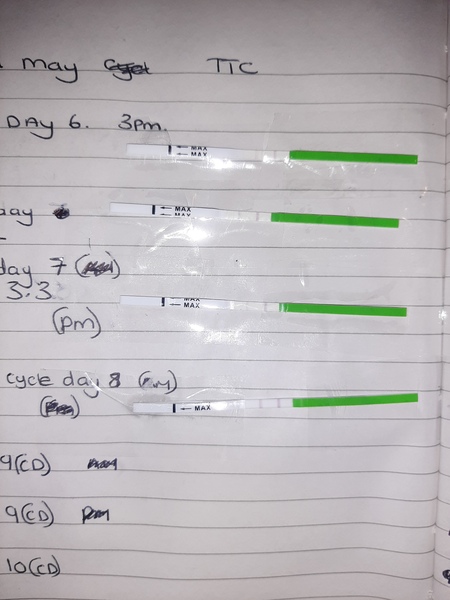 May TTC
DAY 6. 3pm.
MAX
MAX
day
MAX
MAX
day 7
3:3
MAX
MAX
(pm)
cycle day 8
MAX
9(CD)
9(CD) pm
10(CD)